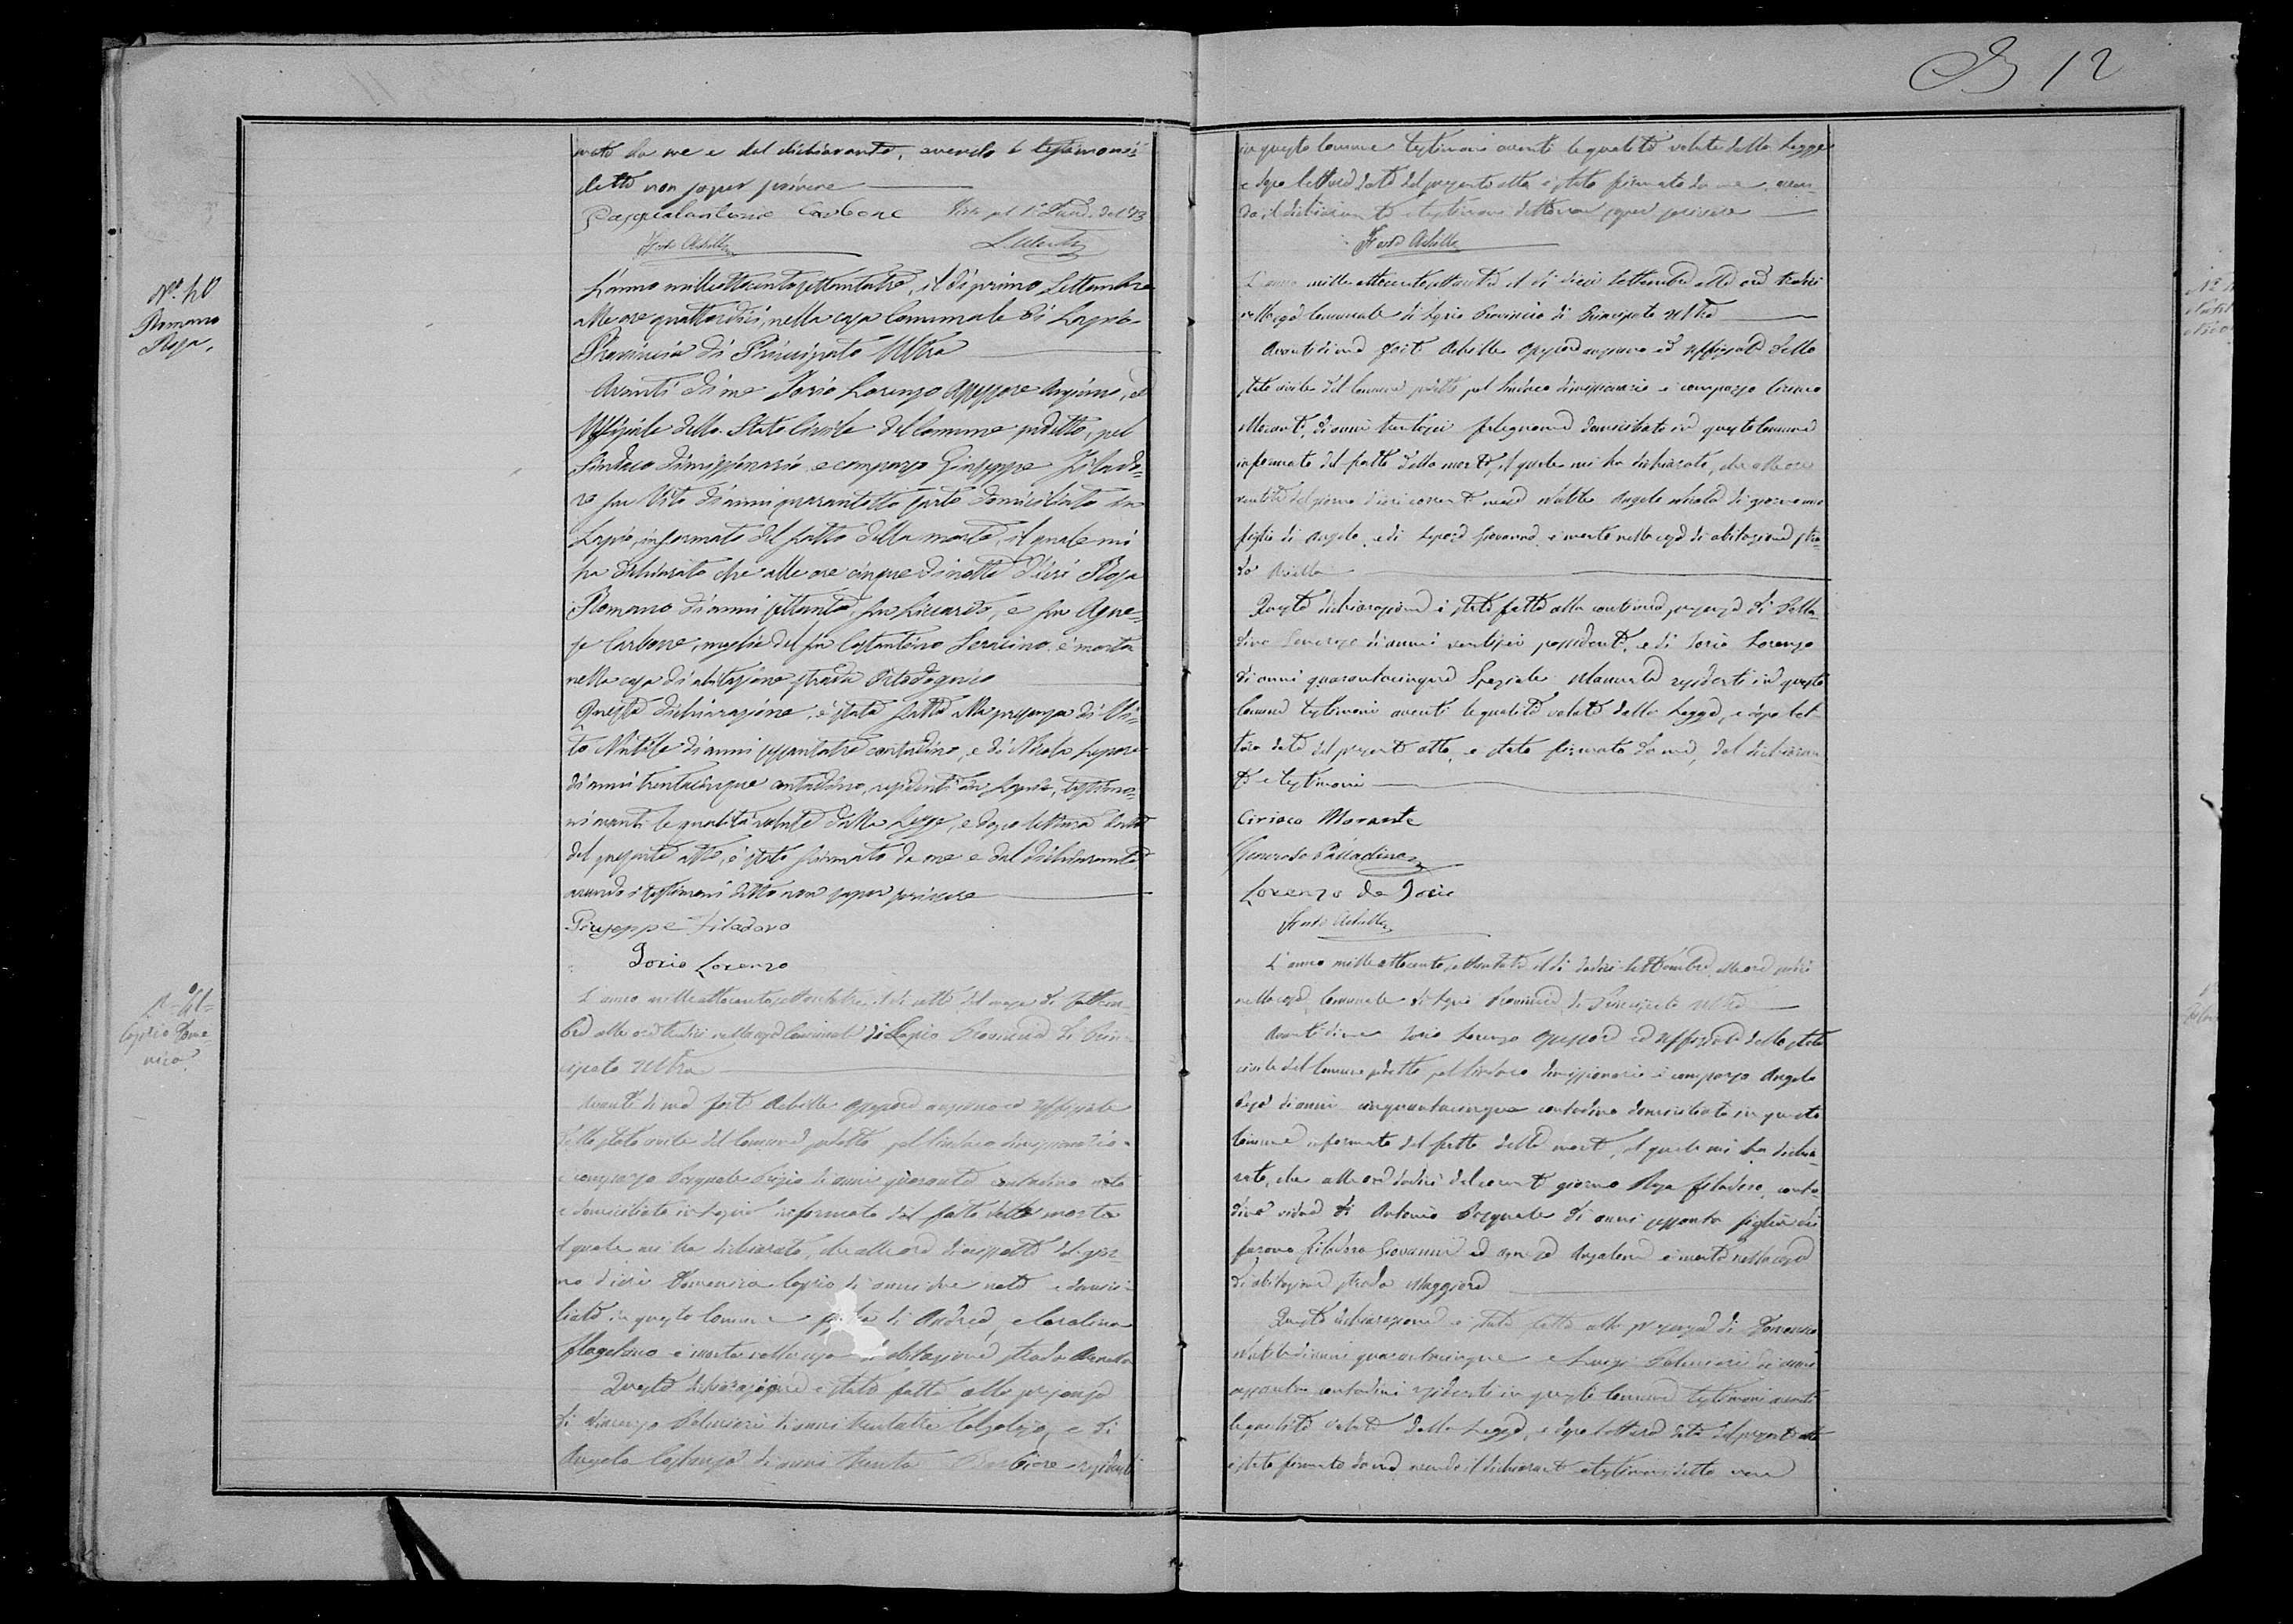 B 12
mato da me e dal dichiarante, avendo i testimonii
detto non saper scrivere
Pasqualantonio Carbone Visto pel
Forte Achille
Nº. 40
Romano
Rosa,
L'anno milleottocentosettantatre, il dì primo Settembre
alle ore quattordici, nella casa Comunale di Lapio
Provincia di Principato Ultra
Avanti di me Iorio Lorenzo Assessore Anziano, ed
Uffiziale dello Stato Civile del Comune sudetto, pel
Sindaco dimissionario, e comparso Giuseppe Filado-
ro fu Vito di anni quarantotto sarto domiciliato in
Lapio, informato del fatto della morte, il quale mi
ha dichiarato che alle ore cinque di notte d'ieri Rosa
Romano di anni settanta, fu Liccardo, e fu Agne-
se Carbone, moglie del fu Costantino Seracino, è morta
nella casa di abitazione strada
Questa dichiarazione, è stata fatta alla presenza di Vi-
to Nutile di anni sessantatre contadino, e di Nicola Lepore
di anni trentacinque contadino, residenti in Lapio, testimo-
ni aventi le qualità volute dalla Legge, e dopo lettura data
del presente atto, è stato firmato da me e dal dichiarante
avendo i testimoni detto non saper scrivere
Giuseppe Filadoro
Iorio Lorenzo
Nº 41
Coprio Dome-
nica
L'anno milleottocentosettantatre, il dì sette del mese di Settem-
bre alle ore tredici nella casa Comunale di Lapio Provincia di Prin-
cipato Ultra
Avanti di me Forte Achille assessore anziano ed uffiziale
dello stato civile del Comune sudetto pel Sindaco dimissionario
è comparso Pasquale di anni quaranta contadino nato
e domiciliato in Lapio informato del fatto della morte
il quale mi ha dichiarato, che alle ore diciassette del gior-
no d'ieri Domenica Coprio di anni due nata e domici-
liata in questo Comune figlia di Andrea, e Carolina
è morta nella casa di abitazione strada
Questa dichiarazione è stata fatta alla presenza
di Vincenzo di anni trentatre Calzolajo, e di
Angelo Costanza di anni trenta Barbiere residenti
in questo Comune testimoni aventi le qualità volute dalla Legge
e dopo lettura data del presente atto è stato firmato da me, aven-
do il dichiarante e testimoni detto non saper scrivere
Forte Achille
L'anno milleottocentosettantatre il dì dieci Settembre alle ore tredici
nella casa Comunale di Lapio Provincia di Principato Ultra
Avanti di me Forte Achille assessore anziano ed uffiziale dello
stato civile del Comune sudetto pel Sindaco dimissionario è comparso Ciriaco
Morante, di anni trentasei falegname domiciliato in questo Comune
informato del fatto della morte, il quale mi ha dichiarato, che alle ore
ventitre del giorno d'ieri corrente mese Nutile Angelo Nicola di giorni
figlio di Angelo, e di Lepore Giovanna, è morto nella casa di abitazione stra-
da
Questa dichiarazione è stata fatta alla continua presenza di Palla-
dino Generoso di anni ventisei possidente, e di Iorio Lorenzo
di anni quarantacinque Speziale Manuale residenti in questo
Comune testimoni aventi le qualità volute dalla Legge, e dopo let-
tura data del presente atto, è stato firmato da me, dal dichiaran-
te e testimoni
Ciriaco Morante
Generoso Palladino
Lorenzo de Iorio
Forte Achille
L'anno milleottocentosettantatre il dì dodici Settembre, alle ore
nella casa Comunale di Lapio Provincia di Principato Ultra
Avanti di me Iorio Lorenzo assessore ed uffiziale dello stato
civile del Comune sudetto, pel Sindaco dimissionario è comparso Angelo
di anni cinquantacinque contadino domiciliato in questo
Comune informato del fatto della morte, il quale mi ha dichia-
rato, che alle ore dodici del corrente giorno Rosa Filadoro, conta-
dina vedova di Antonio Pasquale di anni sessanta figlia dei
furono Filadoro Giovanni ed è morta nella casa
di abitazione strada Maggiore
Questa dichiarazione è stata fatta alla presenza di Domenico
Nutile di anni quarantacinque e Luigi di anni
sessanta contadini residenti in questo Comune testimoni aventi
le qualità volute dalla Legge, e dopo lettura data del presente atto
è stato firmato da me, avendo il dichiarante e testimoni detto non